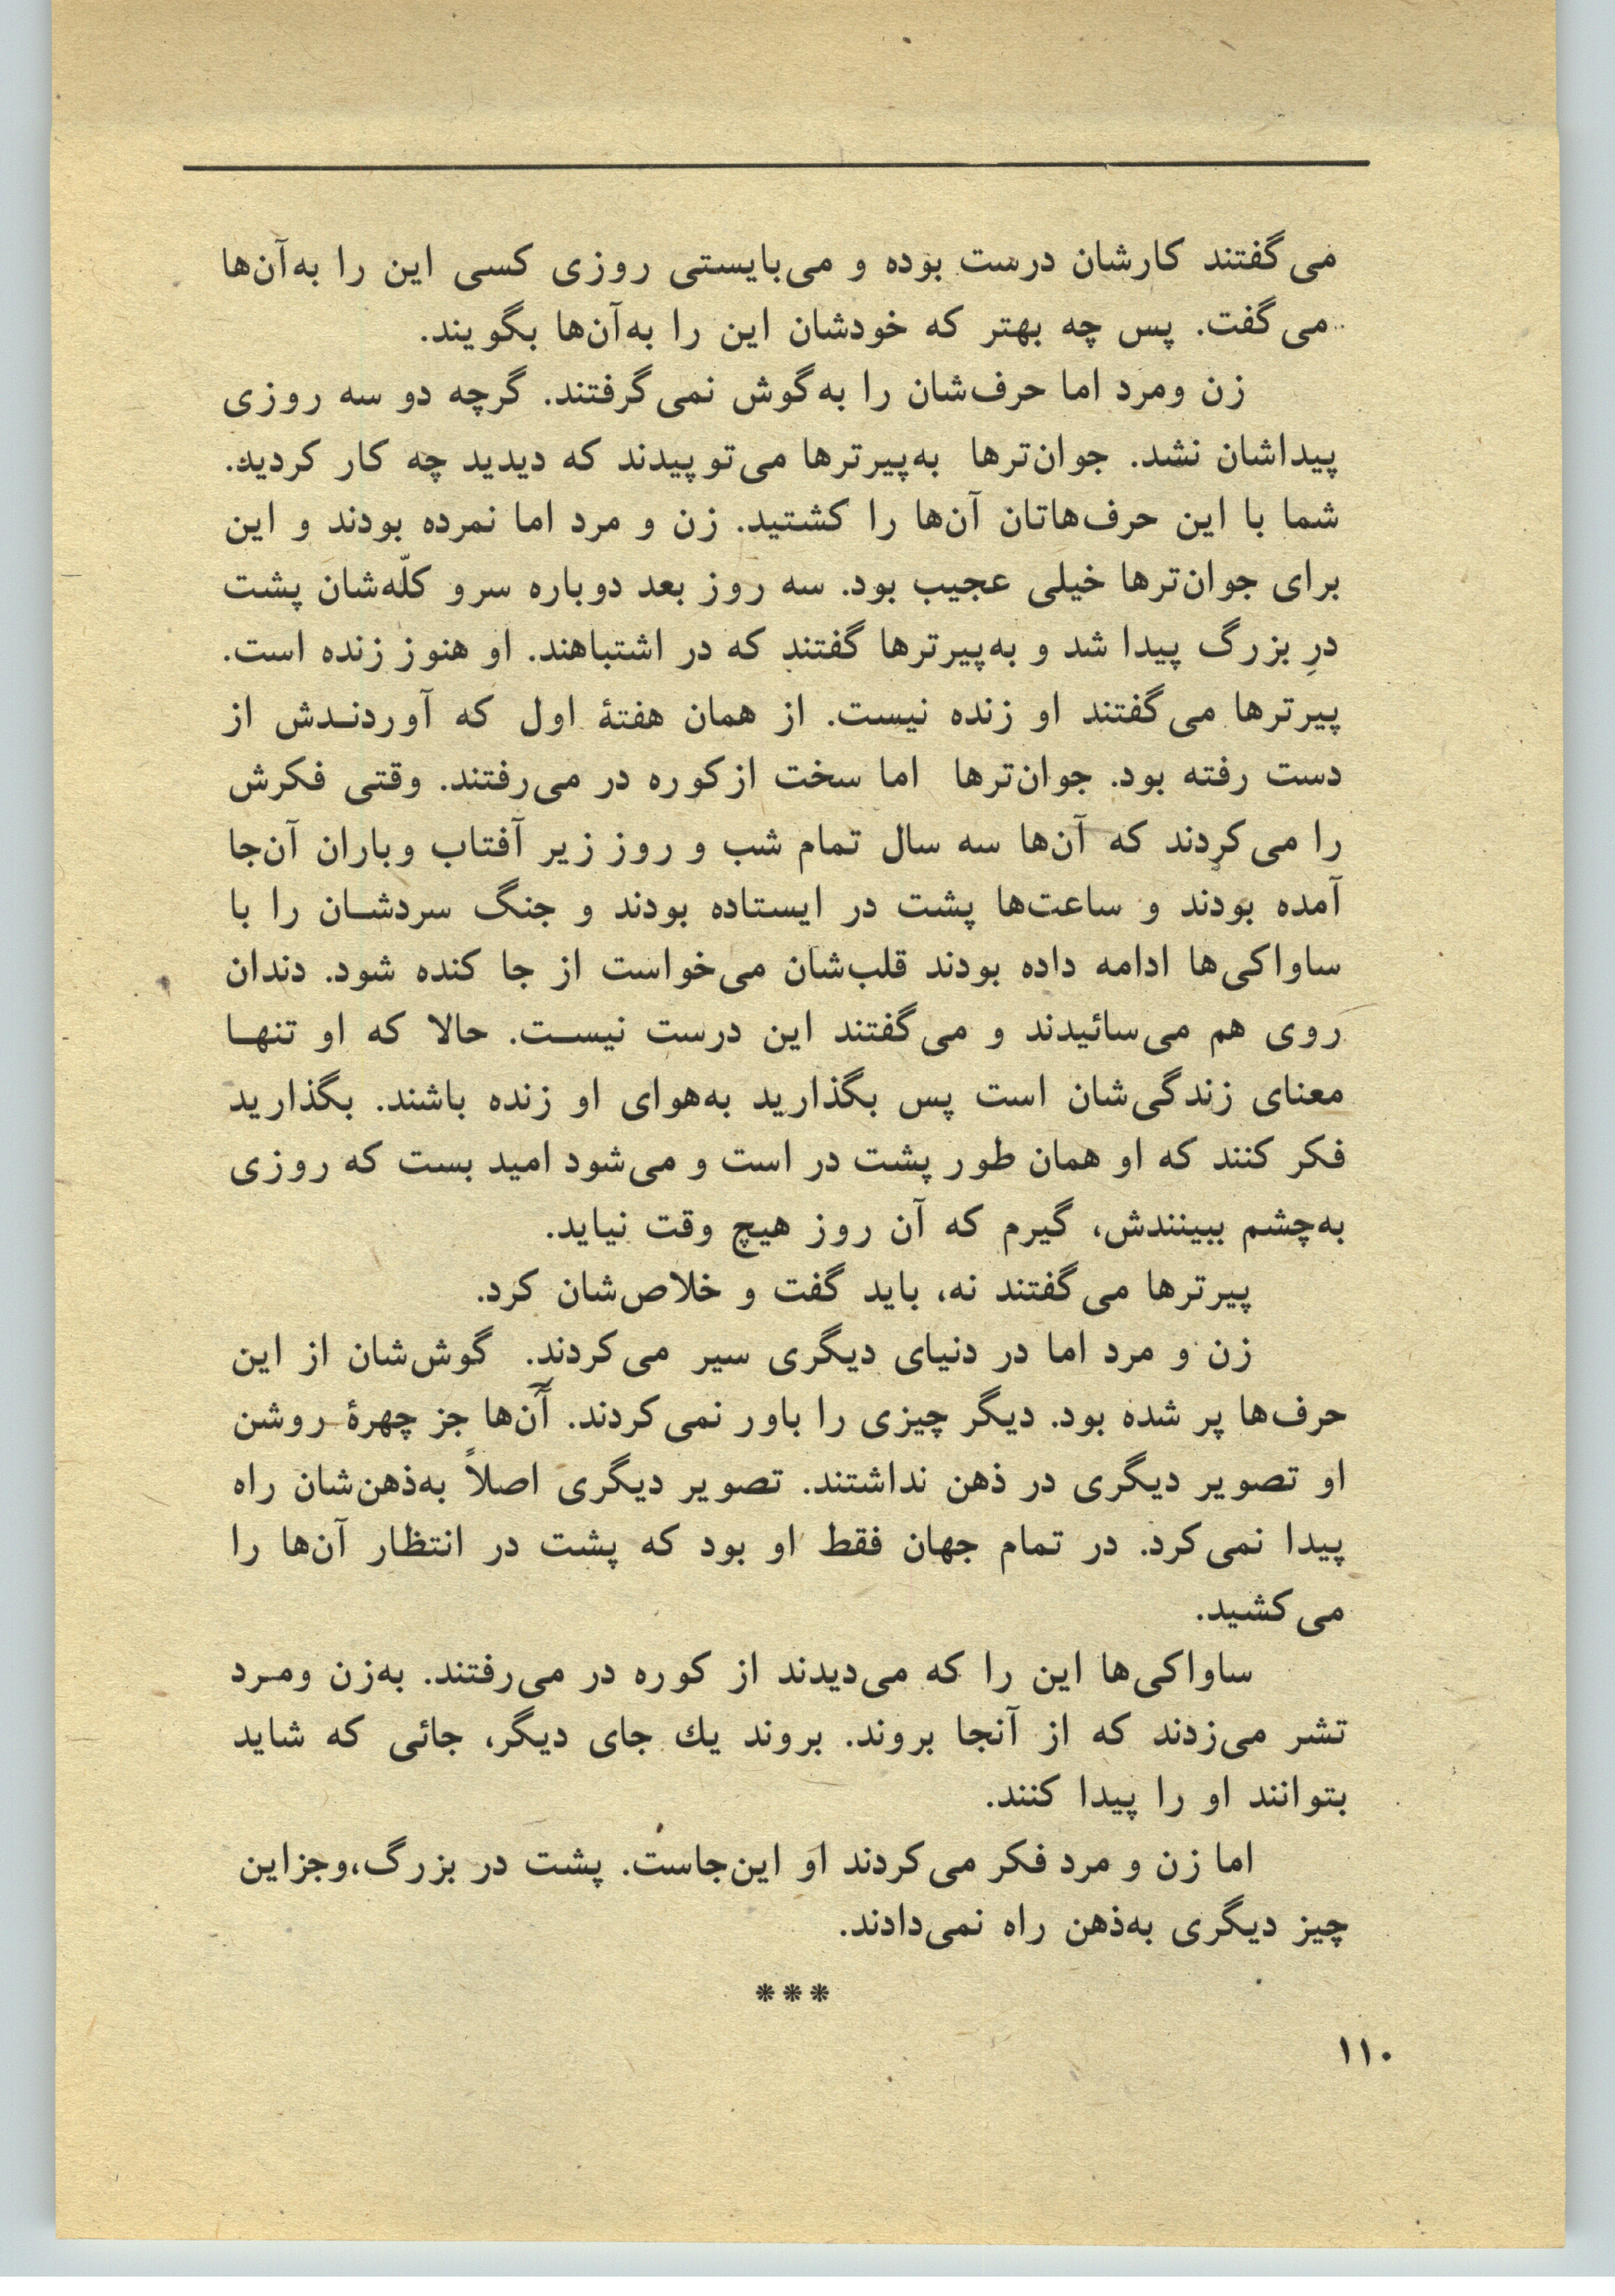 می‌گفتند کارشان درست بوده و می‌بایستی روزی کسی این را به‌آن‌ها
می‌گفت. پس چه بهتر که خودشان این را به‌آن‌ها بگویند.
زن ومرد اما حرف‌شان را به‌گوش نمی‌گرفتند. گرچه دو سه روزی
پیداشان نشد. جوان‌ترها به‌پیرترها می‌توپیدند که دیدید چه کار کردید.
شما با این حرف‌هاتان آن‌ها را کشتید. زن و مرد اما نمرده بودند و این
برای جوان‌ترها خیلی عجیب بود. سه روز بعد دوباره سرو کلّه‌شان پشت
درِ بزرگ پیدا شد و به‌پیرترها گفتند که در اشتباهند. او هنوز زنده است.
پیرترها می‌گفتند او زنده نیست. از همان هفتهٔ اول که آوردنـدش از
دست رفته بود. جوان‌ترها اما سخت ازکوره در می‌رفتند. وقتی فکرش
را می‌کردند که آن‌ها سه سال تمام شب و روز زیر آفتاب وباران آن‌جا
آمده بودند و ساعت‌ها پشت در ایستاده بودند و جنگ سردشـان را با
ساواکی‌ها ادامه داده بودند قلب‌شان می‌خواست از جا کنده شود. دندان
روی هم می‌سائیدند و می‌گفتند این درست نیسـت. حالا که او تنهـا
معنای زندگی‌شان است پس بگذارید به‌هوای او زنده باشند. بگذارید
فکر کنند که او همان طور پشت در است و می‌شود امید بست که روزی
به‌چشم ببینندش، گیرم که آن روز هیچ وقت نیاید.
پیرترها می‌گفتند نه، باید گفت و خلاص‌شان کرد.
زن و مرد اما در دنیای دیگری سیر می‌کردند. گوش‌شان از این
حرف‌ها پر شده بود. دیگر چیزی را باور نمی‌کردند. آن‌ها جز چهرهٔ روشن
او تصویر دیگری در ذهن نداشتند. تصویر دیگری اصلاً به‌ذهن‌شان راه
پیدا نمی‌کرد. در تمام جهان فقط او بود که پشت در انتظار آن‌ها را
می‌کشید.
ساواکی‌ها این را که می‌دیدند از کوره در می‌رفتند. به‌زن ومـرد
تشر می‌زدند که از آنجا بروند. بروند یك جای دیگر، جائی که شاید
بتوانند او را پیدا کنند.
اما زن و مرد فکر می‌کردند او این‌جاست. پشت در بزرگ،وجزاین
چیز دیگری به‌ذهن راه نمی‌دادند.
***
۱۱۰